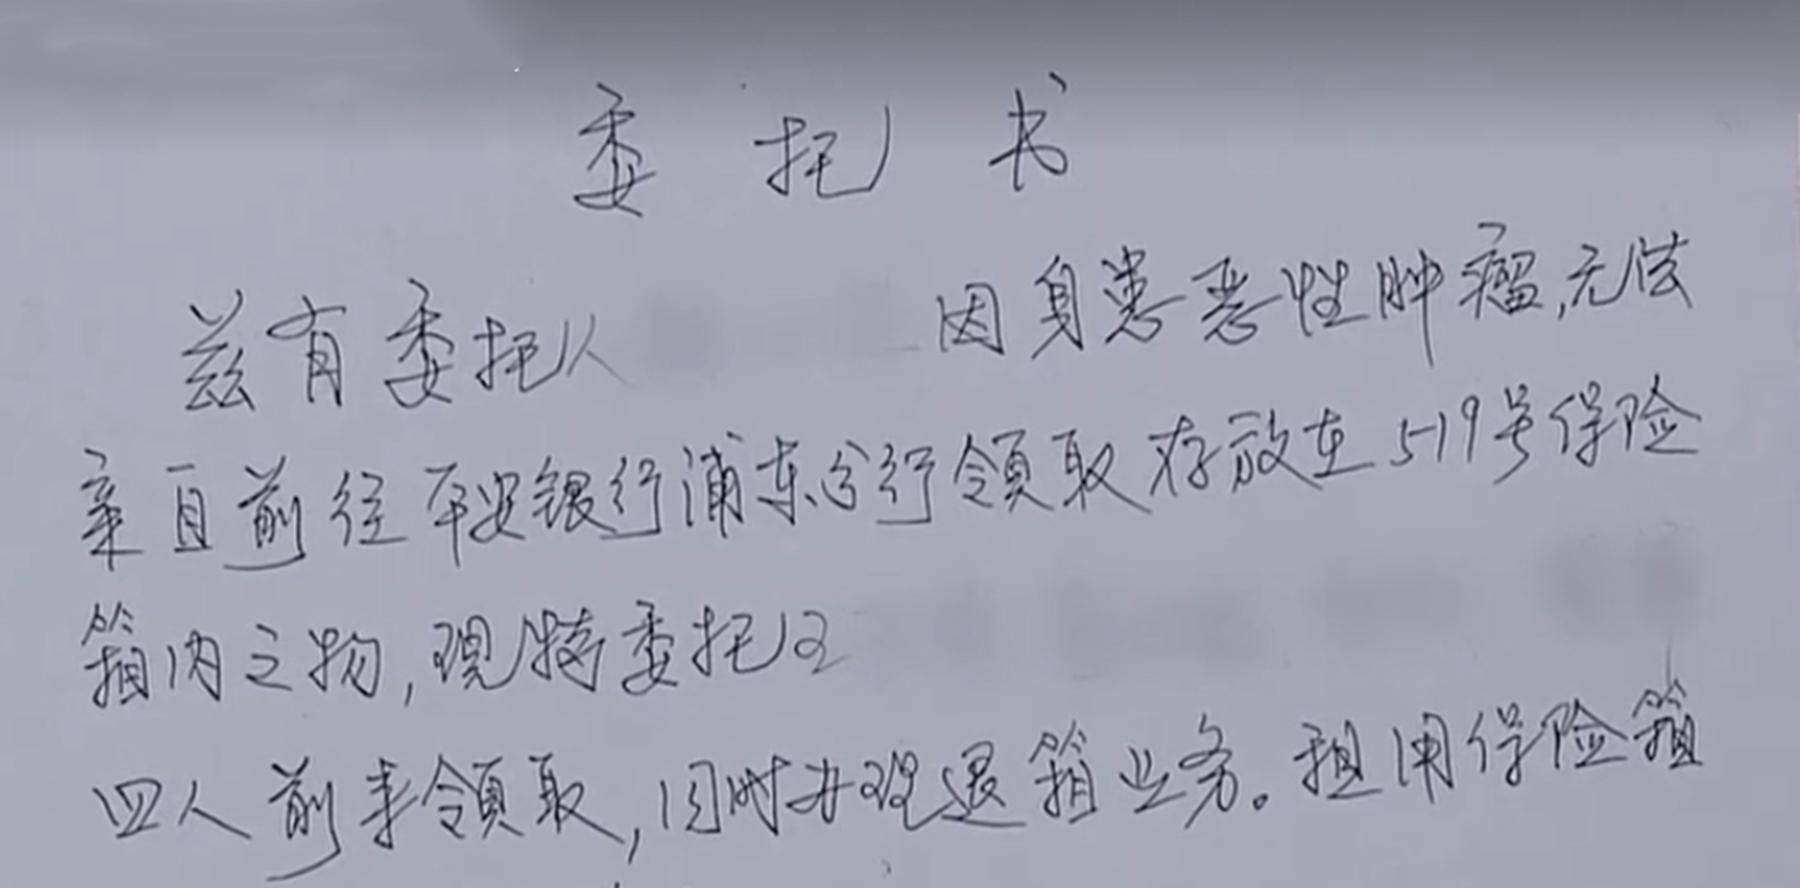 委托书
兹有委托人 因身患恶性肿瘤,无法
亲自前往平安银行浦东分行领取存放在519号保险
箱内之物,现特委托
四人前来领取,同时办理退箱业务。租用保险箱